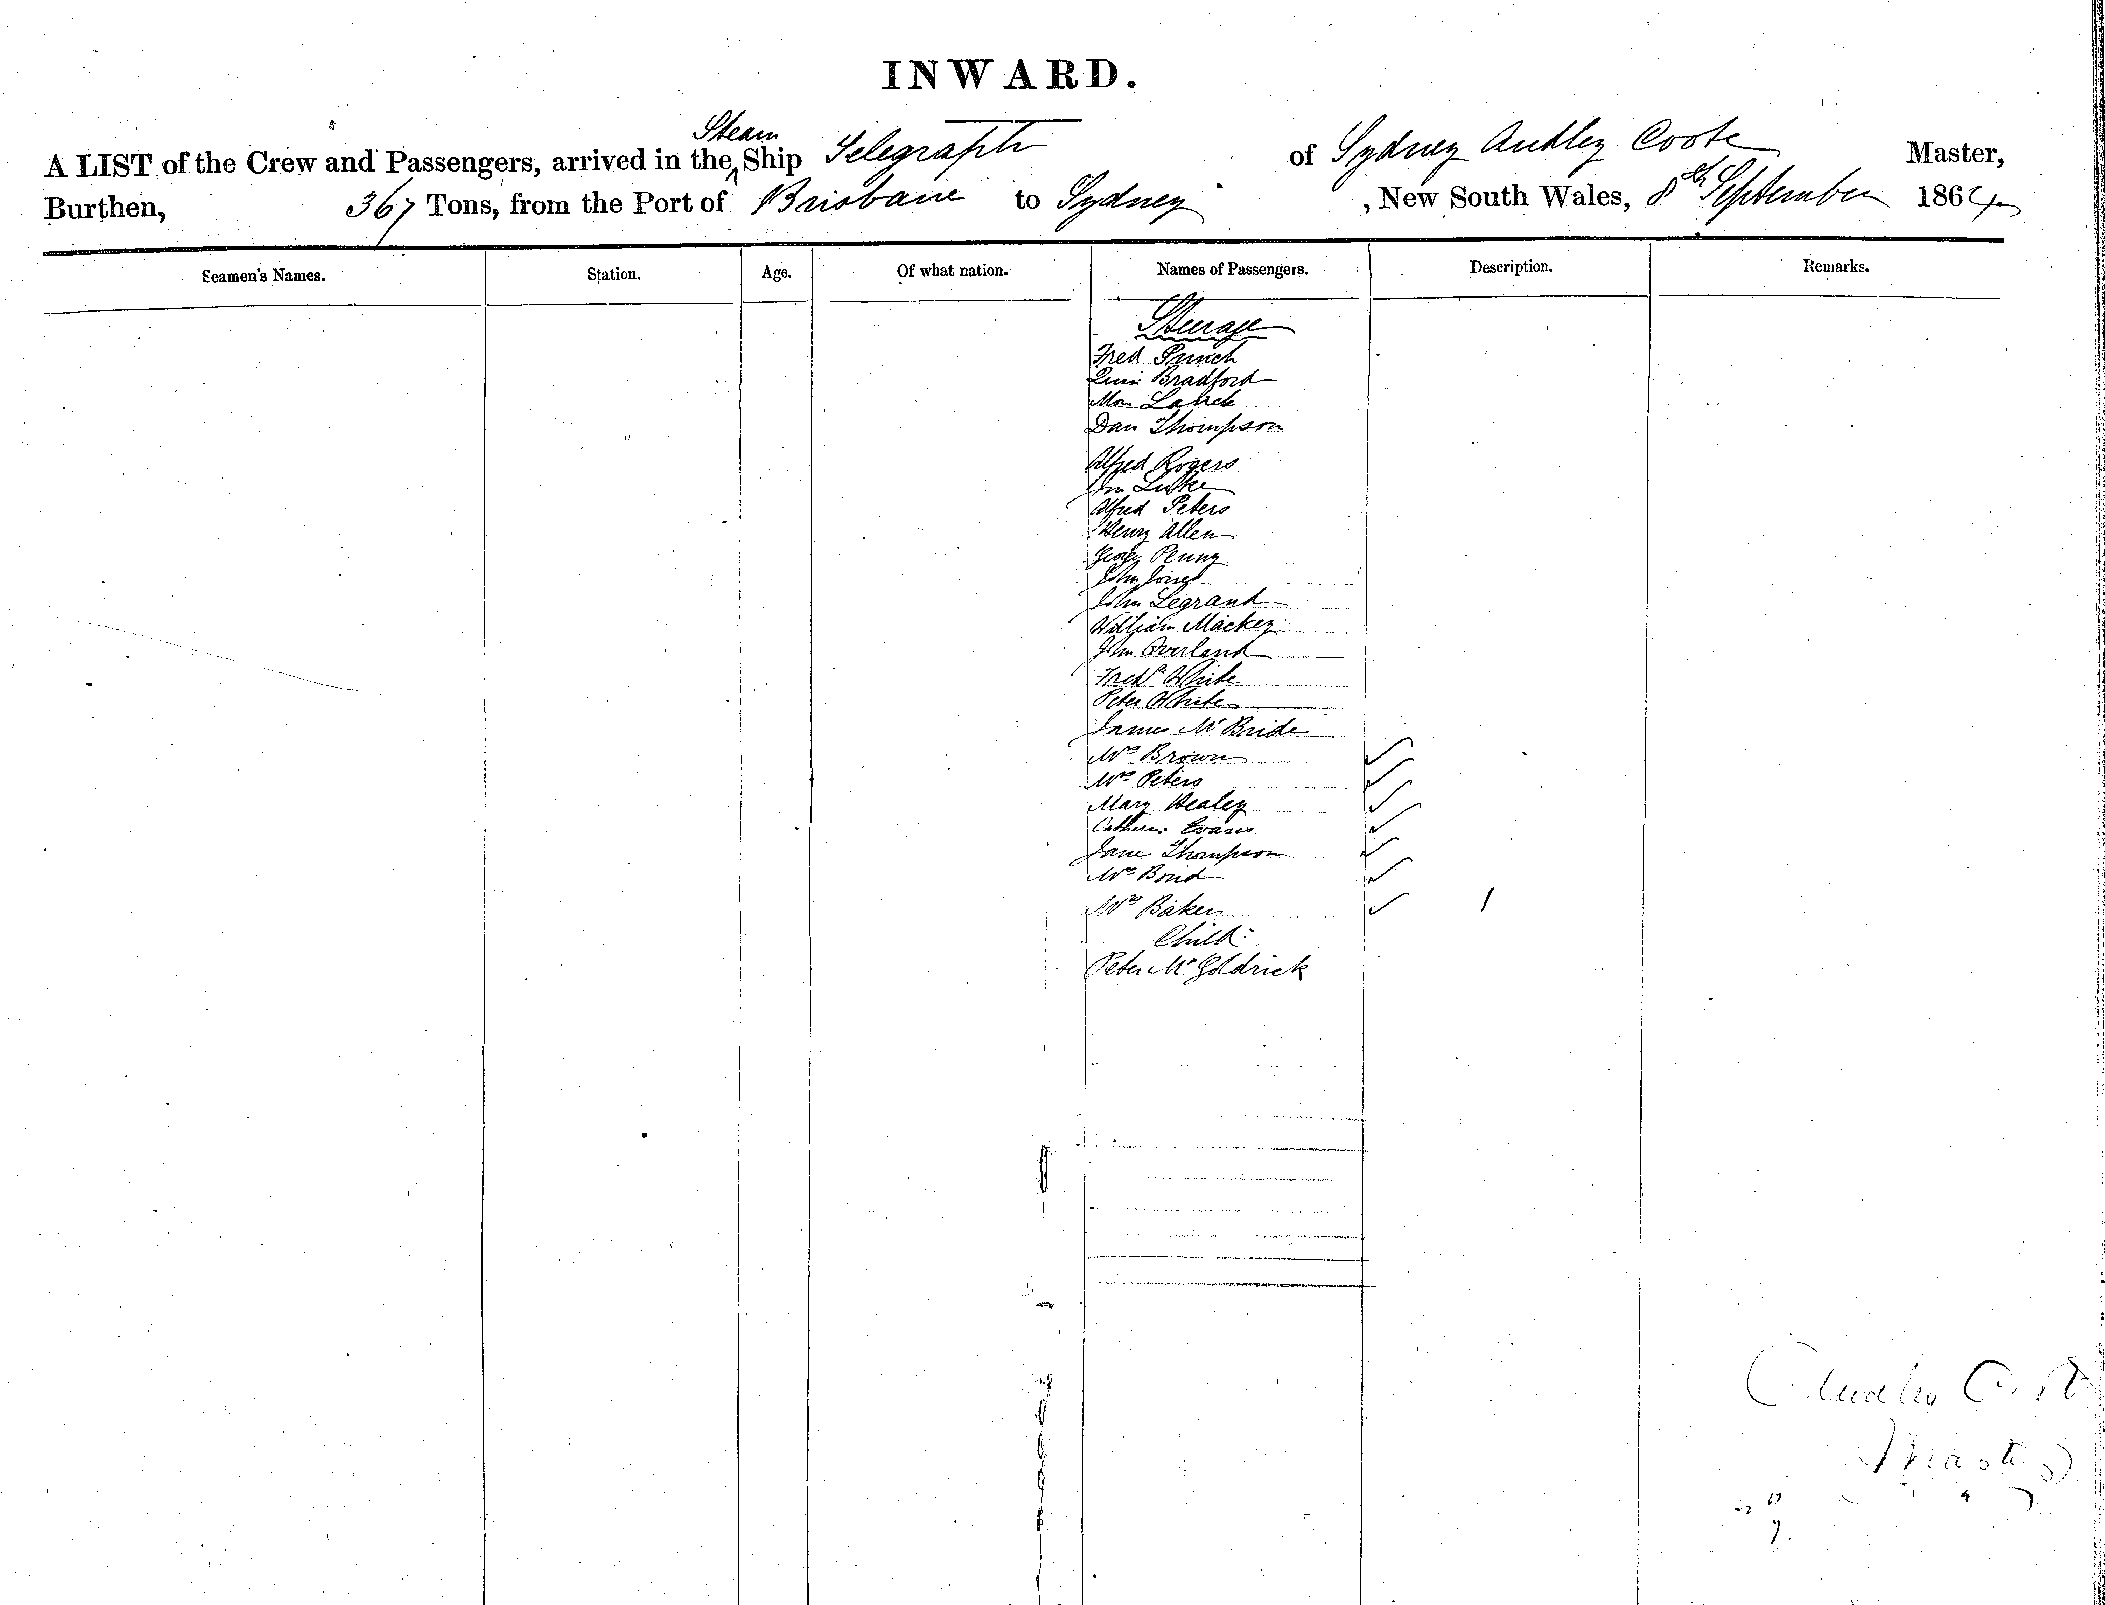 INWARD.
Steam
A LIST of the Crew and Passengers, arrived in the Ship Telegraph of Sydney Audley Coote Master,
Burthen, 367 Tons, from the Port of Brisbane to Sydney , New South Wales, 8th September 1864
Seamen's Names. Station. Age. Of what nation. Names of Passengers. Description. Remarks.
Steerage
Fred Punch
Bradford
Dan Thompson
Alfred Rogers
Jno Luke
Alfred Peters
Henry Allen
George Penny
John Jones
John Legrand
William Mackey
John Overland
Fredk White
Peter White
James McBride
Mrs Brown
Mrs Peters
Mary Healey
Catherine Evans
Jane Thompson
Mrs Bond
Mrs Baker
Child
Peter McGoldrick
Audley Coote
Master